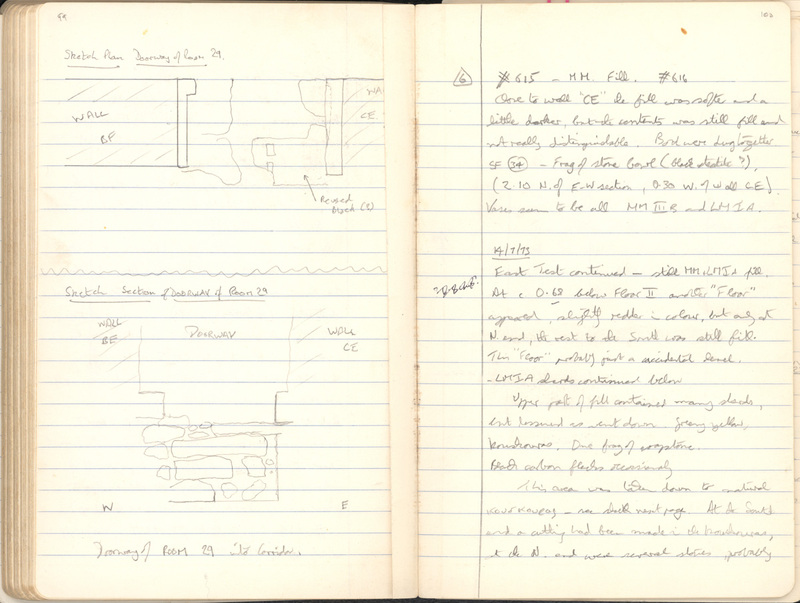 99
Sketch Plan Doorway of Room 29.
WALL
BE
WA
CE
Reused
Block (?)
Sketch Section of DOORWAY of ROOM 29
WALL
BE
DOORWAY
WALL
CE
W
E
Doorway of ROOM 29 into Corridor.
100
6
#615 - MM. Fill. #616
Close to wall "CE" the fill was softer and a
little darker, but the contents was still fill and
not really distinguishable. Both were dug together
SF 34 - Frag of stone bowl (black steatite?).
(2.10 N. of E-W section, 0.30 W. of Wall CE)
Vases seem to be all MM III B and LM I A.
14/7/73
East Test continued - still MM+LM I A fill.
At c 0.68 below Floor II another "Floor"
appeared, slightly redder in colour, but only at
N end, the rest to the South was still fill.
This "Floor" probably just a accidental level.
- LM I A sherds continued below
Upper part of fill contained many sherds,
but lessened as went down. Greeny yellow,
kouskouras. One frag of
Black carbon flecks occasionally
This area was taken down to natural
kouskouras - see sketch next page. At the South
end a cutting had been made in the kouskouras,
at the N. end were several stones probably